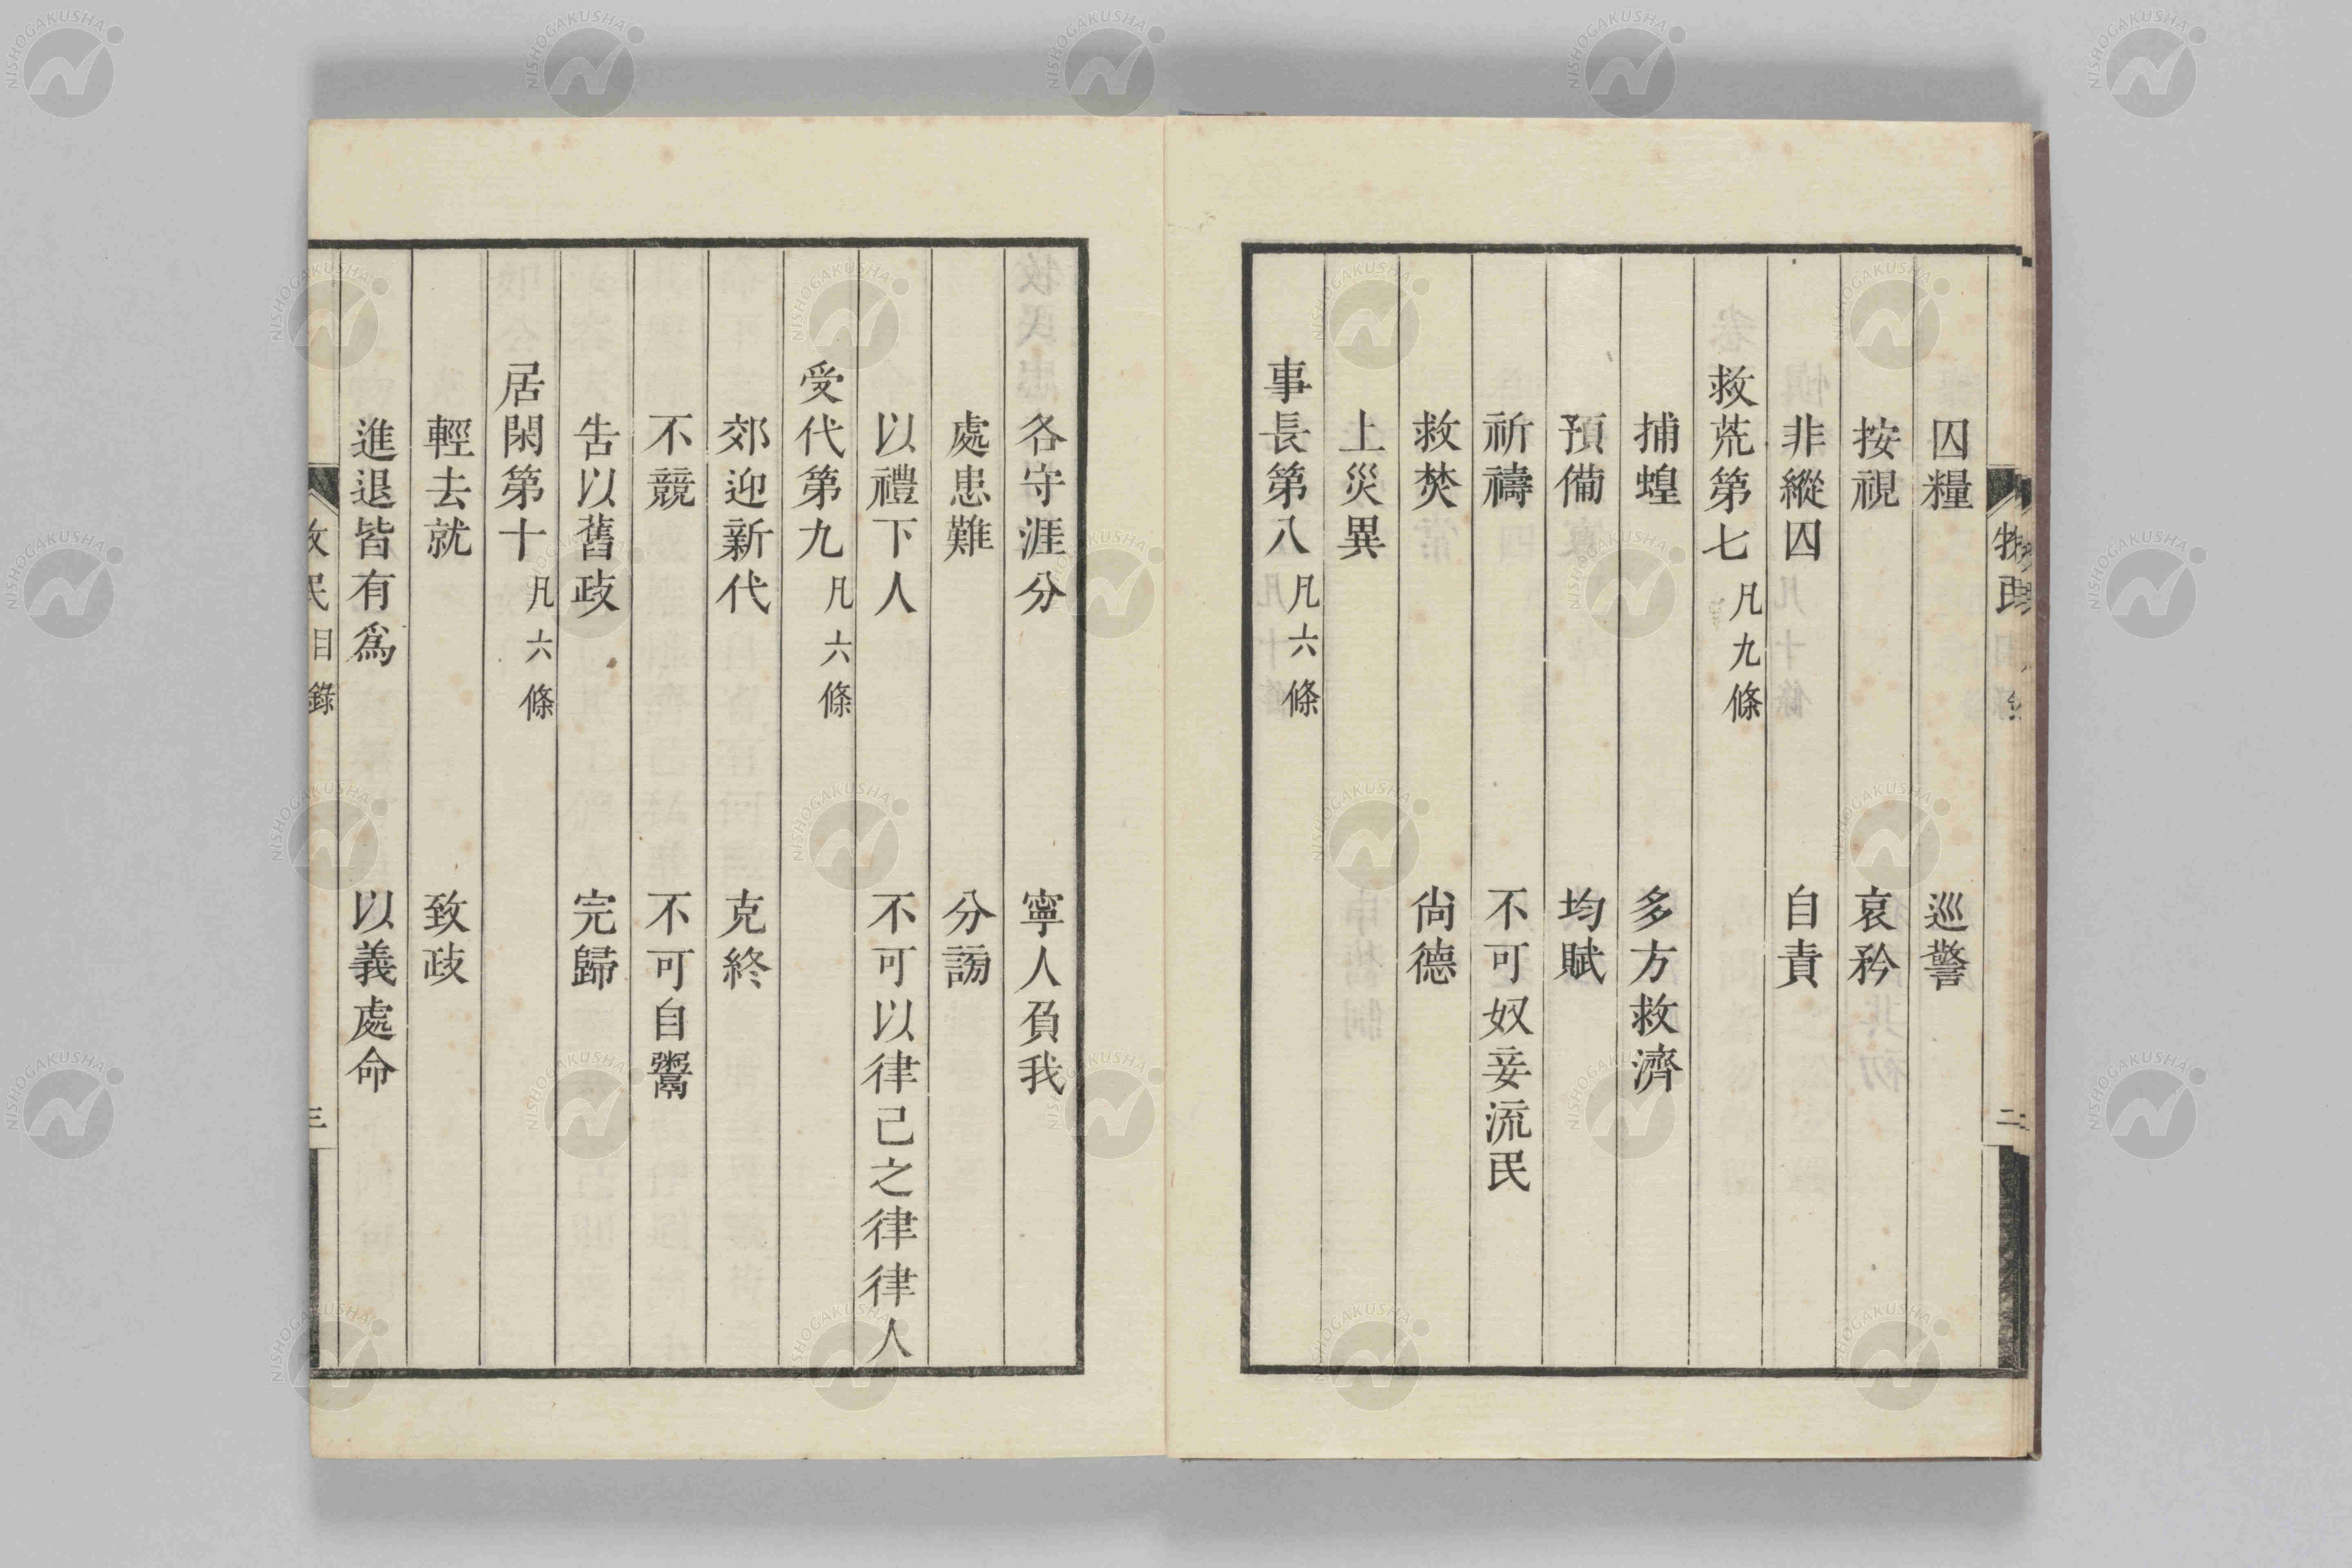 囚糧 巡警
按視 哀矜
非縱囚 自責
救荒第七 凡九條
捕蝗 多方救濟
預備 均賦
祈禱 不可奴妾流民
救焚 尙德
上災異
事長第八 凡六條
各守涯分 寧人負我
處患難 分謗
以禮下人 不可以律己之律律人
受代第九 凡六條
郊迎新代 克終
不競 不可自鬻
告以舊政 完歸
居閑第十 凡六條
輕去就 致政
進退皆有爲 以義處命
牧民目錄 三
NISHOGAKUSHA